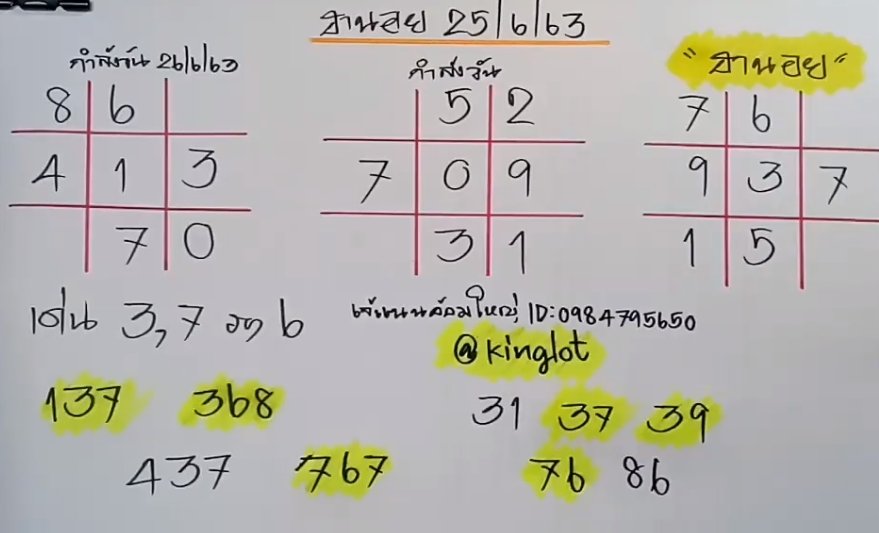 ฮานอย 25/6/63
คำสั่งวัน 26/6/63
8 6
4 1 3
7 0
คำสั่งวัน
5 2
7 0 9
3 1
"ฮานอย"
7 6
9 3 7
1 5
เด่น 3,7 รอง 6
ID:0984795650
@kinglot
137 368
437 767
31 37 39
76 86